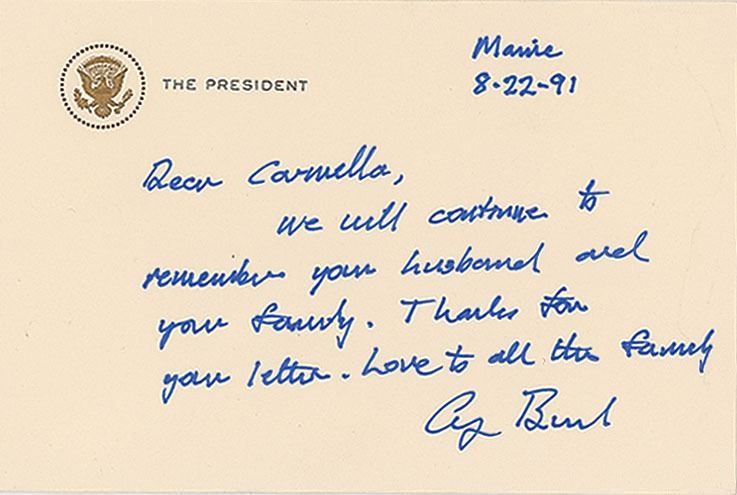 THE PRESIDENT
Maine
8-22-91
Dear Carmella,
We will continue to
remember your husband and
your family. Thanks for
your letter. Love to all the family
Bush